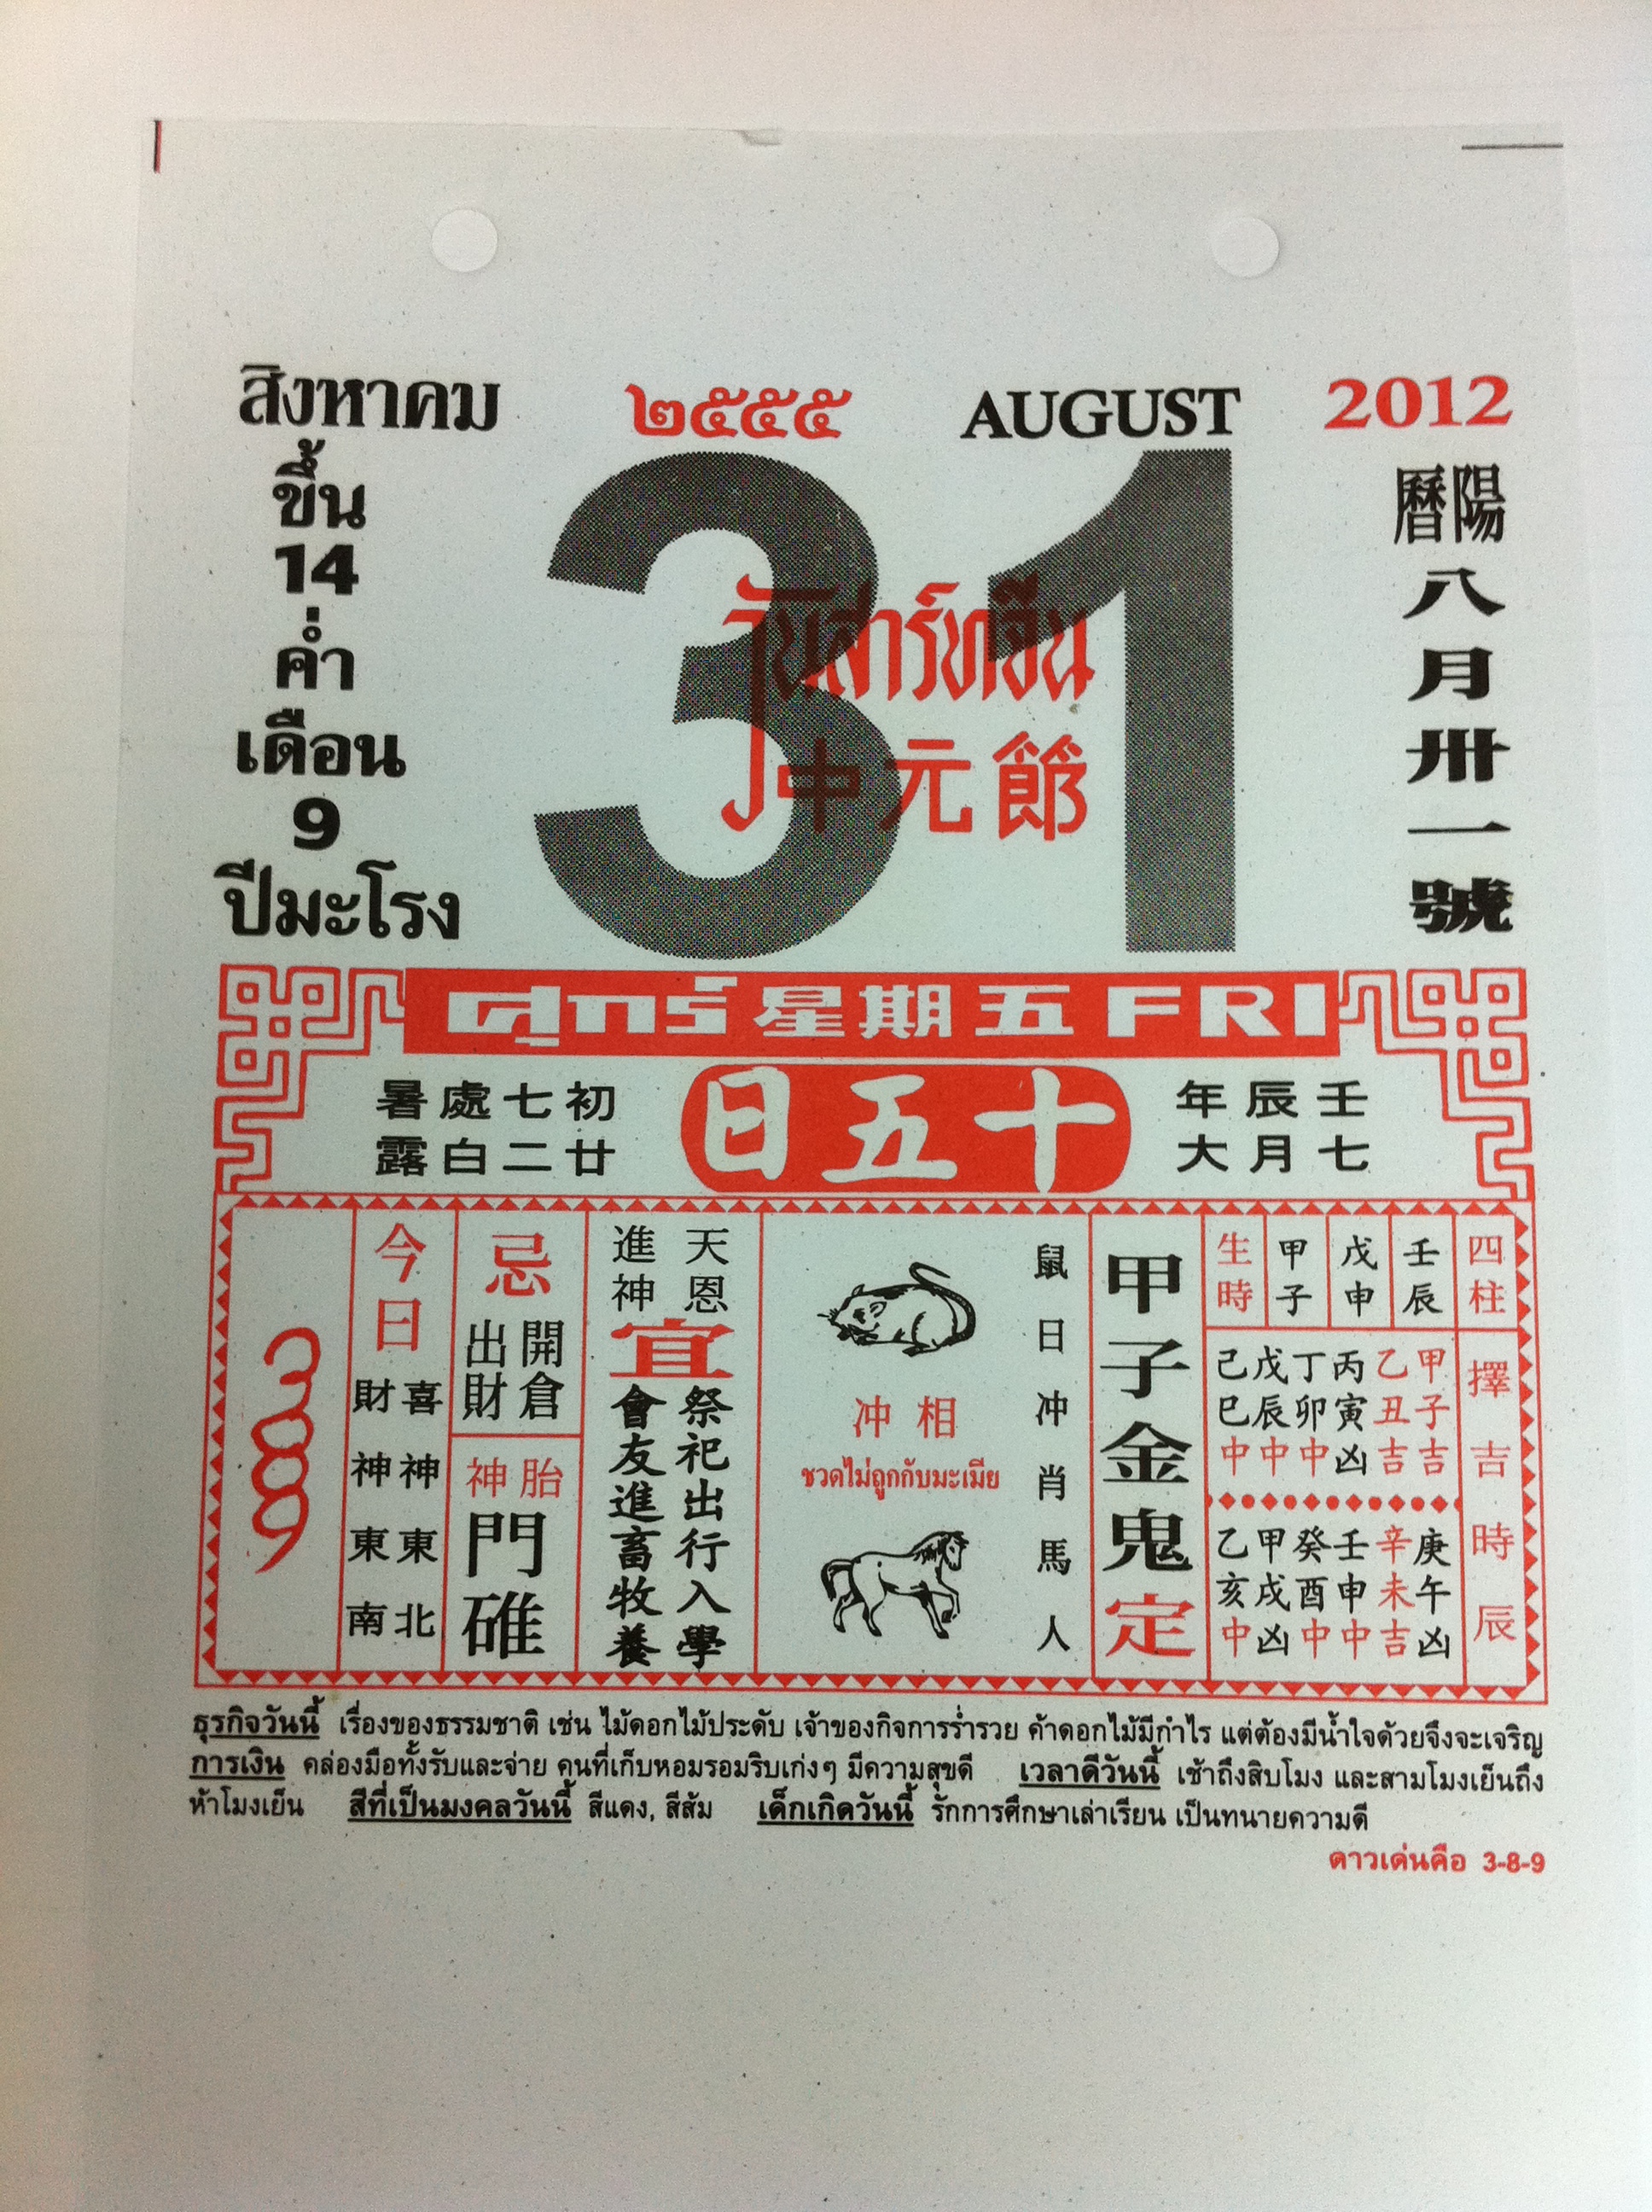 สิงหาคม ๒๕๕๕ AUGUST 2012
ขึ้น
14
ค่ำ
เดือน
9
ปีมะโรง
31
วันสาร์ทจีน
中元節
陽曆
八月卅一號
ศุกร์ 星期五 FRI
壬辰年
七月大
十五日
初七處暑
廿二白露
四柱
壬辰
戊申
甲子
生時
擇吉時辰
甲子吉
乙丑吉
丙寅凶
丁卯中
戊辰中
己巳中
庚午凶
辛未吉
壬申中
癸酉中
甲戌凶
乙亥中
甲子金鬼定
鼠日冲肖馬人
相冲
ชวดไม่ถูกกับมะเมีย
天恩
進神
宜
祭祀出行入學
會友進畜牧養
忌
開倉
出財
胎神
門碓
今日
喜神東北
財神東南
389
ธุรกิจวันนี้ เรื่องของธรรมชาติ เช่น ไม้ดอกไม้ประดับ เจ้าของกิจการร่ำรวย ค้าดอกไม้มีกำไร แต่ต้องมีน้ำใจด้วยจึงจะเจริญ
การเงิน คล่องมือทั้งรับและจ่าย คนที่เก็บหอมรอมริบเก่งๆ มีความสุขดี เวลาดีวันนี้ เช้าถึงสิบโมง และสามโมงเย็นถึง
ห้าโมงเย็น สีที่เป็นมงคลวันนี้ สีแดง, สีส้ม เด็กเกิดวันนี้ รักการศึกษาเล่าเรียน เป็นทนายความดี
ดาวเด่นคือ 3-8-9